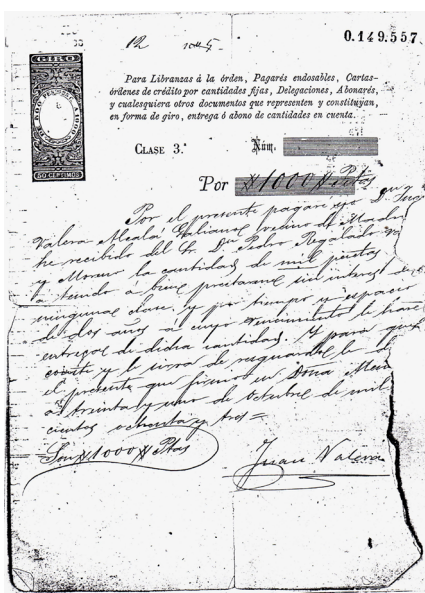 0.149.557
GIRO
50 CENTIMOS
Para Libranzas á la órden, Pagarés endosables, Cartas-
órdenes de crédito por cantidades fijas, Delegaciones, Abonarés,
y cualesquiera otros documentos que representen y constituyan,
en forma de giro, entrega ó abono de cantidades en cuenta.
CLASE 3.ª Núm.
Por 1000 Ptas
Por el presente pagaré yo D. Juan
Valera Alcalá Galiano vecino de
he recibido del Sr. Dn. Pedro Regalado
y Moreno la cantidad de mil pesetas
á bien prestarme sin interes de
ninguna clase, y por tiempo y espacio
de dos años á cuyo vencimiento le haré
entrega de dicha cantidad. Y para que
y le sirva de resguardo le
el presente que firmo en Doña Mencia
á treinta y uno de Octubre de mil
cientos ochenta y tres =
Son 1000 Ptas
Juan Valera